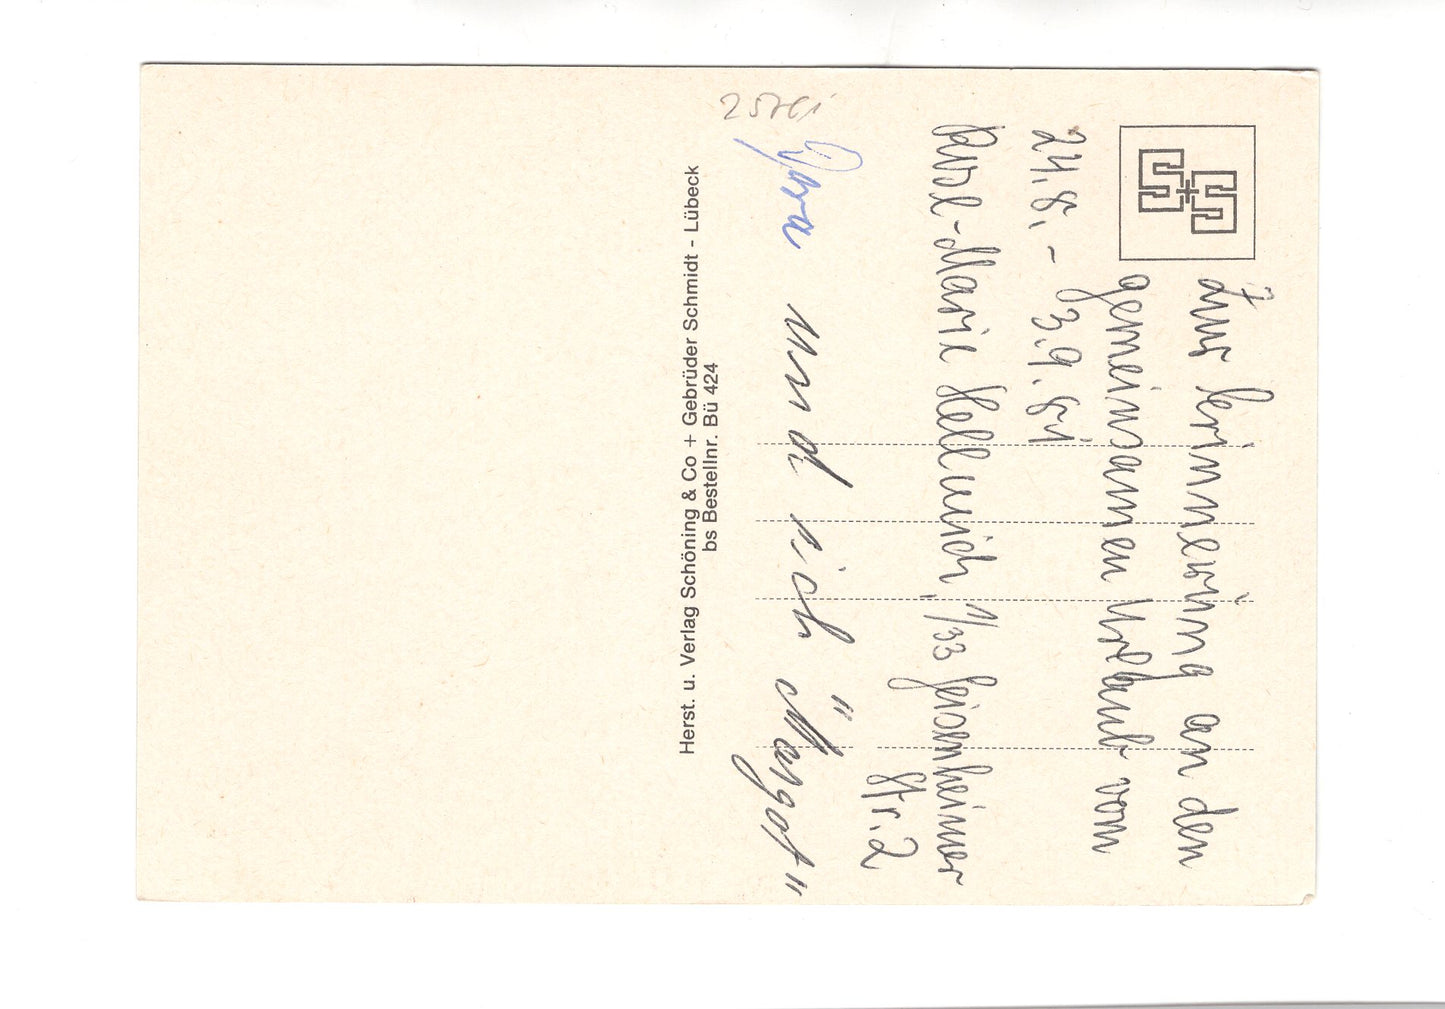 Zur Erinnerung an den
gemeinsamen Urlaub vom
24.8. - 3.9.81
Rosel-Marie Hellmich, 1/33 Geisenheimer
Str. 2
und ich "Margot"
Herst. u. Verlag Schöning & Co + Gebrüder Schmidt - Lübeck
bs Bestellnr. Bü 424
S+S